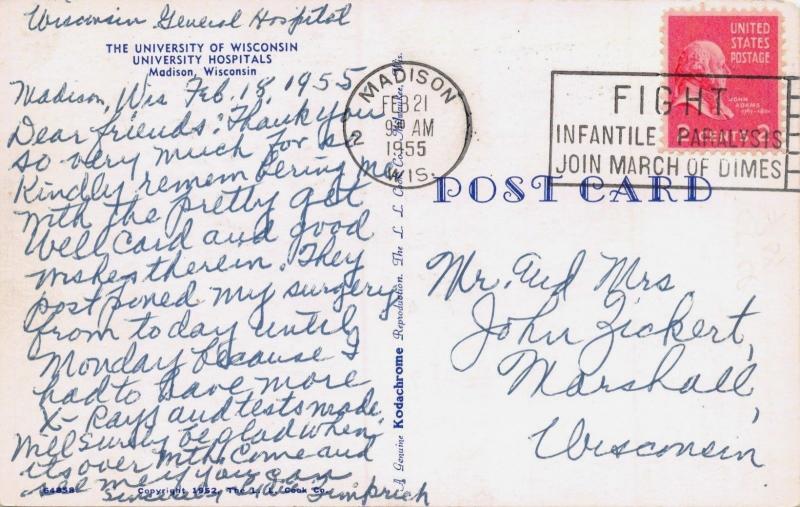 Wisconsin General Hospital
THE UNIVERSITY OF WISCONSIN
UNIVERSITY HOSPITALS
Madison, Wisconsin
Madison, Wis Feb. 18, 1955
Dear friends: Thank you
so very much for so
kindly remembering me
with the pretty get
well card and good
wishes therein. They
postponed my surgery
from today until
Monday because I
had to have more
X-Rays and tests made.
Will surely be glad when
its over with. Come and
see me if you can
Sincerely Timprich
64858 Copyright 1952, The L. L. Cook Co.
A Genuine Kodachrome Reproduction. The L. L. Cook Co., Milwaukee, Wis.
MADISON
FEB 21
9 AM
1955
2
WIS.
UNITED
STATES
POSTAGE
JOHN
ADAMS
2 CENTS 2
FIGHT
INFANTILE PARALYSIS
JOIN MARCH OF DIMES
POST CARD
Mr. and Mrs
John Zickert,
Marshall,
Wisconsin